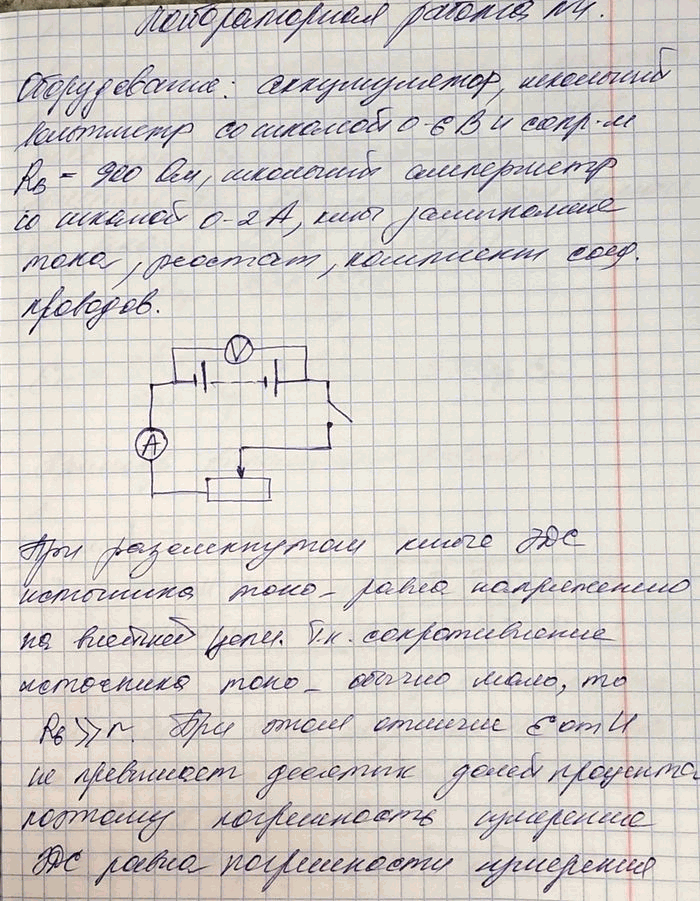 Лабораторная работа №4.
Оборудование: аккумулятор, школьный
вольтметр со шкалой 0-6 В и сопр-м
Rв = 900 Ом, школьный амперметр
со шкалой 0-2 А, ключ замыкания
тока, реостат, комплект соед.
проводов.
V
A
При разомкнутом ключе ЭДС
источника тока равна напряжению
на внешней цепи. Т.к. сопротивление
источника тока обычно мало, то
Rв >> r. При этом отличие ε от U
не превышает десятых долей процента
поэтому погрешность измерения
ЭДС равна погрешности измерения